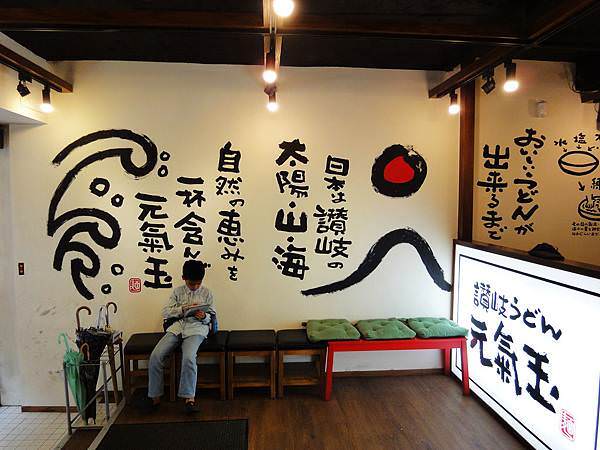 日本は讃岐の
太陽・山・海
自然の恵みを
一杯含んだ
元氣玉
おいしいうどんが
出来るまで
水 塩
讃岐うどん
元氣玉